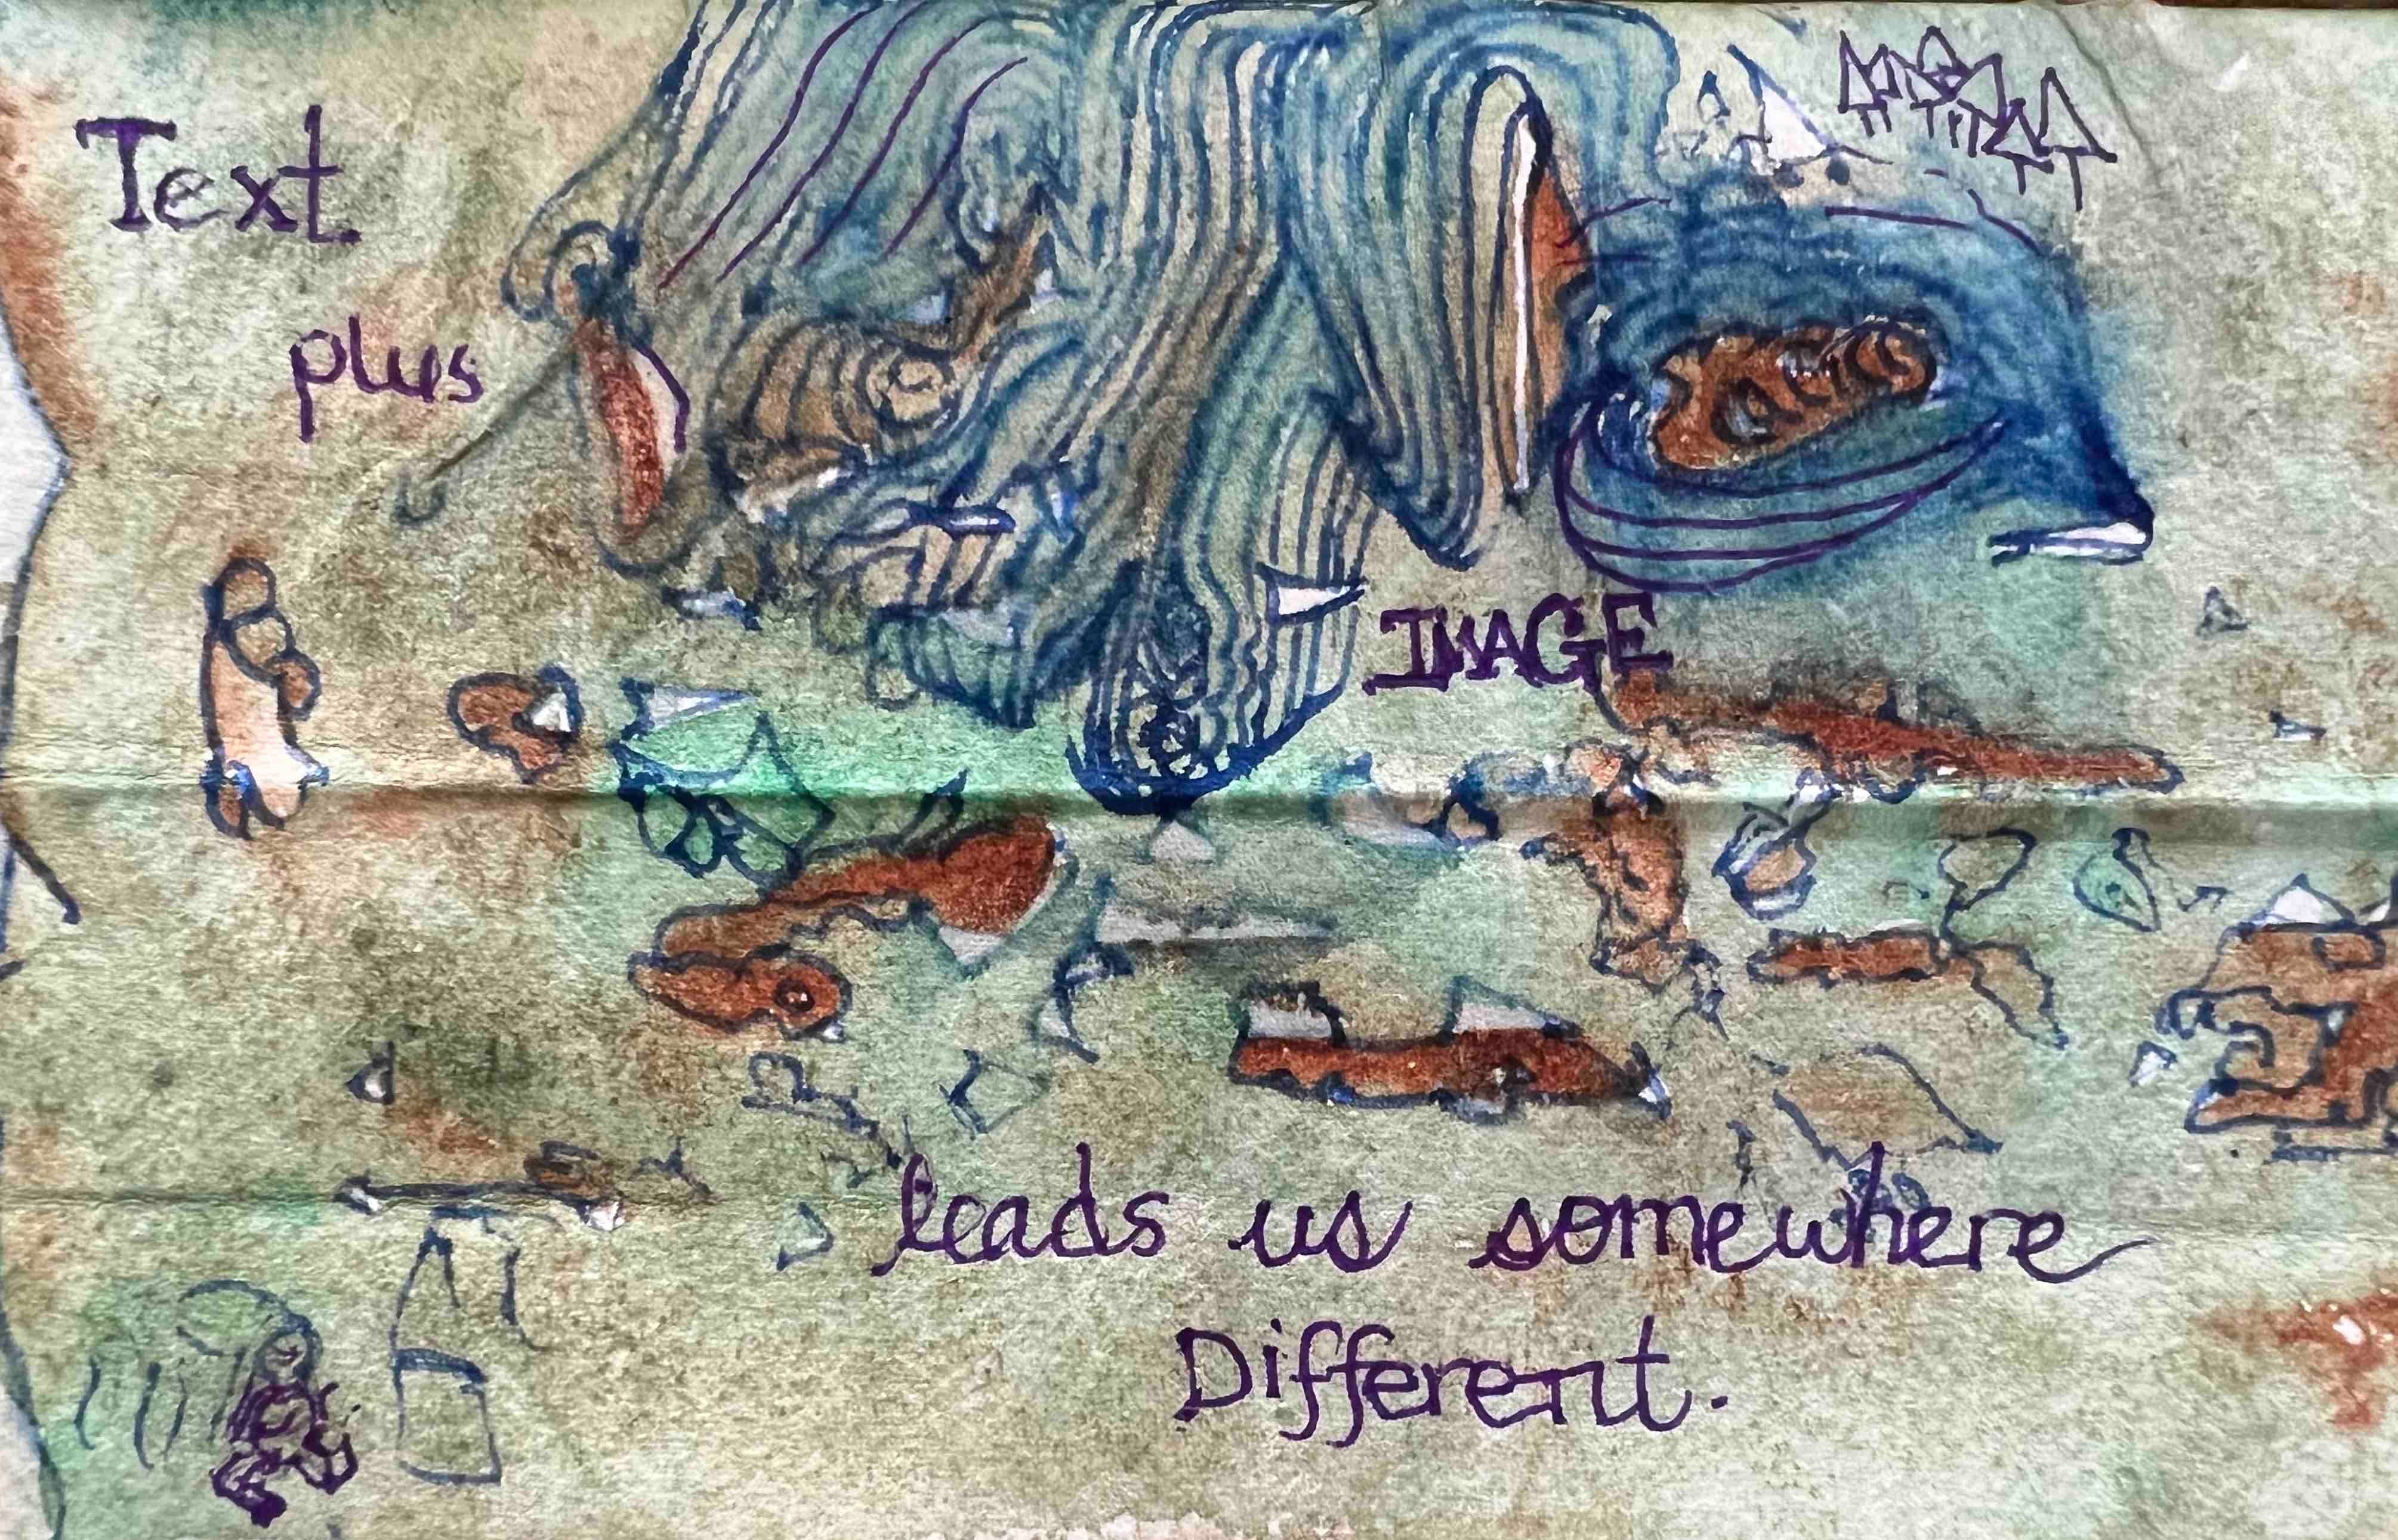 Text
plus
IMAGE
leads us somewhere
Different.